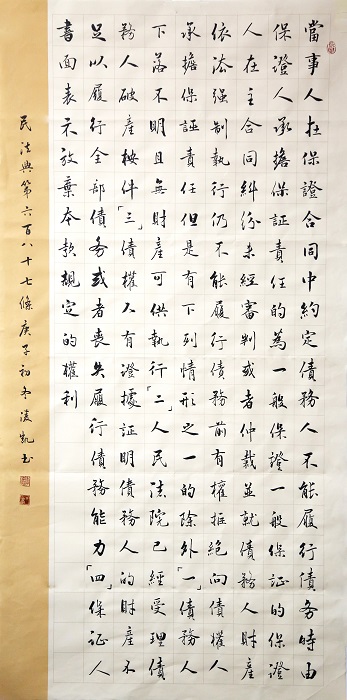 當事人在保證合同中約定債務人不能履行債务時由
保證人承擔保証責任的為一般保證一般保证的保證
人在主合同糾紛未經審判或者仲裁並就債務人財產
依法强制執行仍不能履行債務前有權拒絕向債權人
承擔保証責任但是有下列情形之一的除外「一」債務人
下落不明且無財產可供執行「二」人民法院已經受理債
務人破產按件「三」債權人有證據証明債務人的財產不
足以履行全部債务或者喪失履行債務能力「四」保证人
書面表示放棄本款規定的權利
民法典第六百八十七條庚子初冬凌凱书